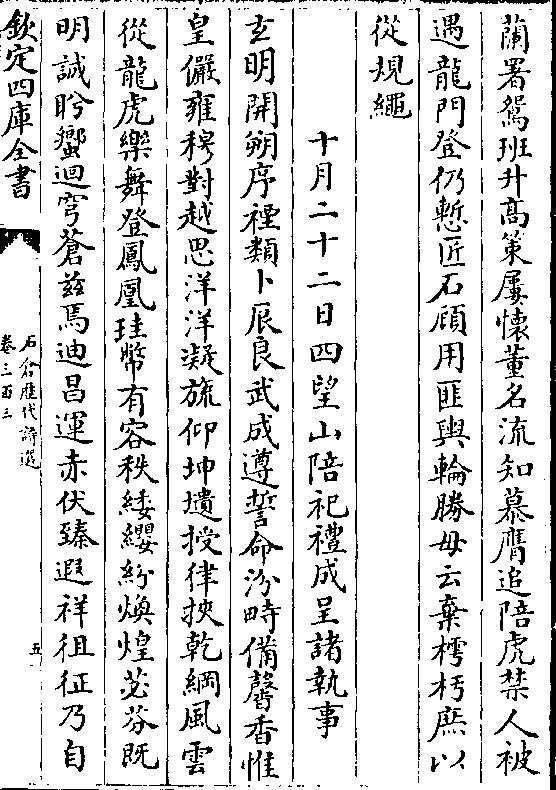 蘭署鴛班升高策屢懷董名流知慕膺追陪虎禁人被
遇龍門登仍慙匠石顧用匪輿輪勝毋云棄樗朽庶以
從規繩
十月二十二日四望山陪祀禮成呈諸執事
玄明開朔序禋類卜辰良武成遵誓命汾畤備馨香惟
皇儼雍穆對越思洋洋凝旒仰坤壝授律挾乾綱風雲
從龍虎樂舞登鳳凰珪幣有容秩緌纓紛煥煌苾芬既
明誠肸蠁迴穹蒼茲焉迪昌運赤伏臻遐祥徂征乃自
欽定四庫全書
石倉歷代詩選
卷三百三
五